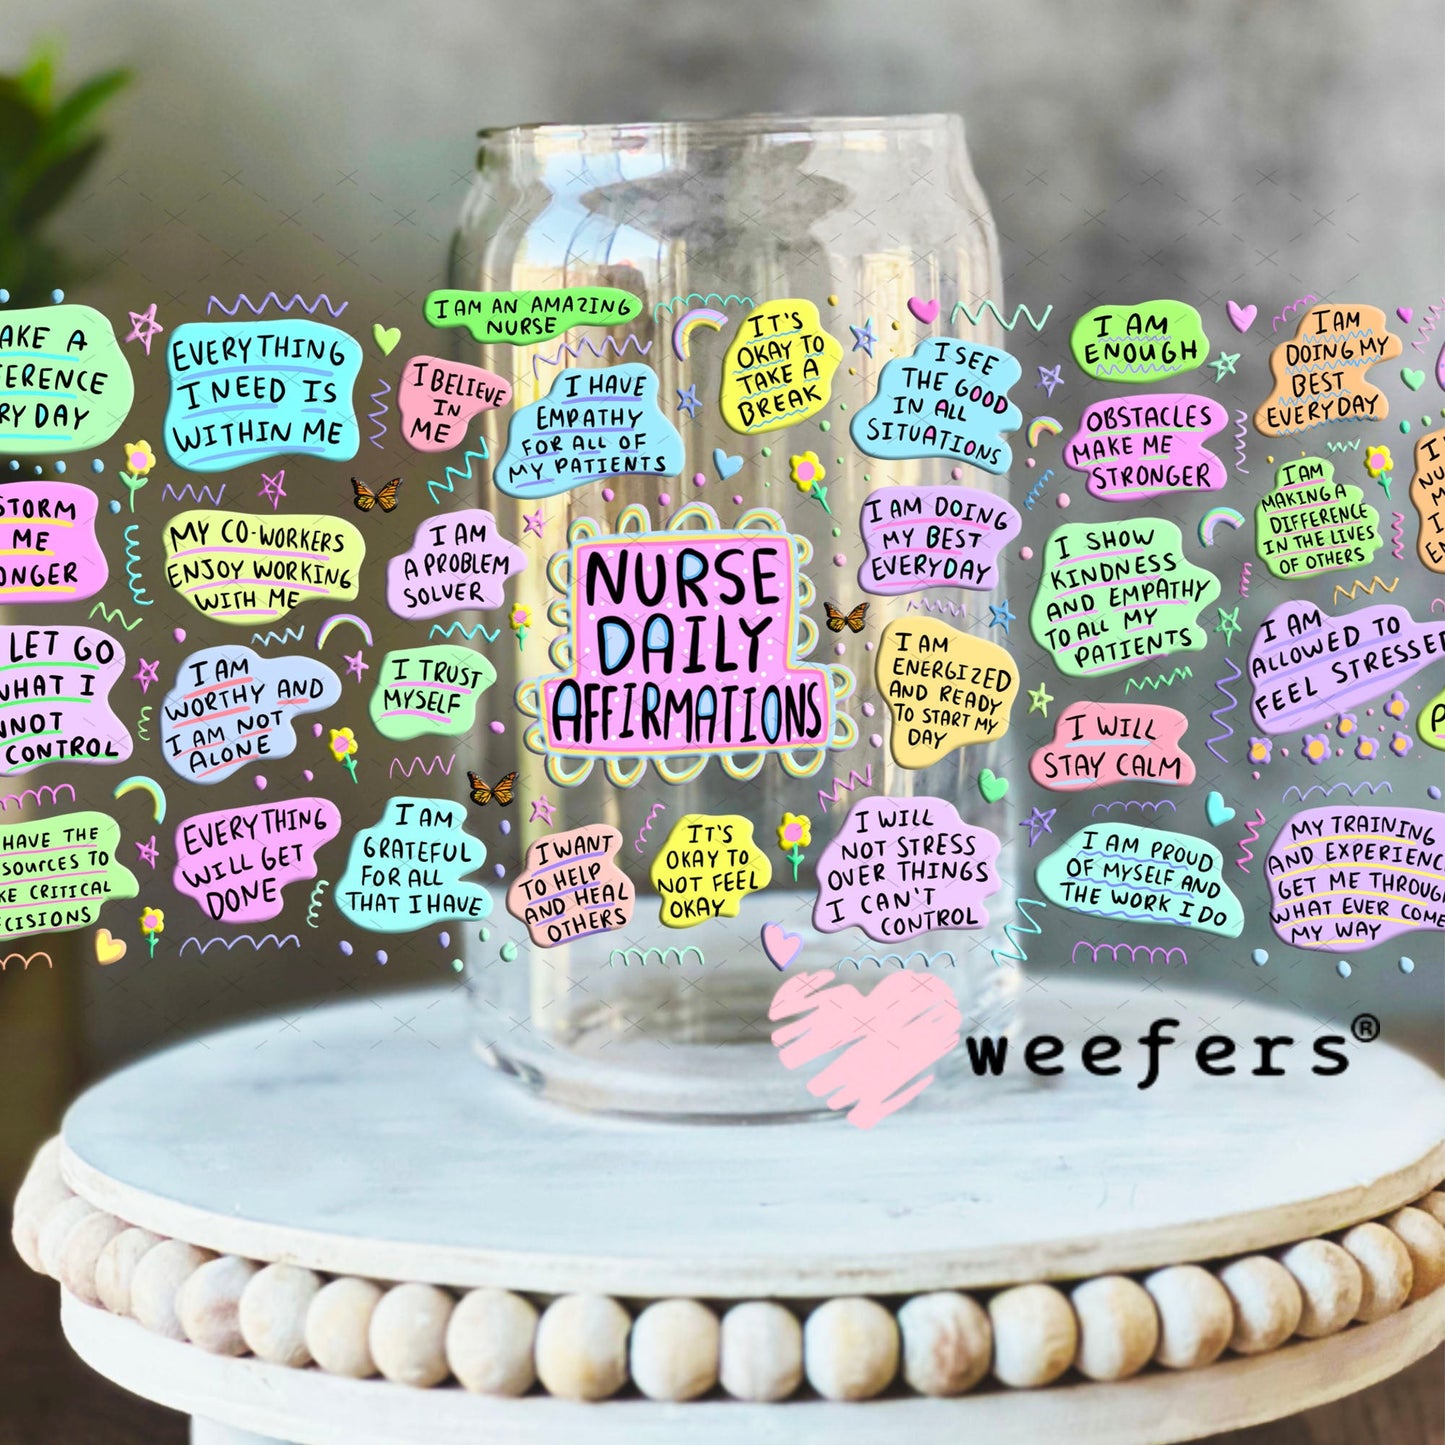 AKE A
ERENCE
RY DAY
EVERYTHING
I NEED IS
WITHIN ME
I AM AN AMAZING
NURSE
I BELIEVE
IN
ME
I HAVE
EMPATHY
FOR ALL OF
MY PATIENTS
IT'S
OKAY TO
TAKE A
BREAK
I SEE
THE GOOD
IN ALL
SITUATIONS
I AM
ENOUGH
I AM
DOING MY
BEST
EVERYDAY
OBSTACLES
MAKE ME
STRONGER
STORM
ME
ONGER
MY CO-WORKERS
ENJOY WORKING
WITH ME
I AM
A PROBLEM
SOLVER
NURSE
DAILY
AFFIRMATIONS
I AM DOING
MY BEST
EVERYDAY
I SHOW
KINDNESS
AND EMPATHY
TO ALL MY
PATIENTS
I AM
MAKING A
DIFFERENCE
IN THE LIVES
OF OTHERS
LET GO
WHAT I
NNOT
CONTROL
I AM
WORTHY AND
I AM NOT
ALONE
I TRUST
MYSELF
I AM
ENERGIZED
AND READY
TO START MY
DAY
I WILL
STAY CALM
I AM
ALLOWED TO
FEEL STRESSED
HAVE THE
SOURCES TO
KE CRITICAL
CISIONS
EVERYTHING
WILL GET
DONE
I AM
GRATEFUL
FOR ALL
THAT I HAVE
I WANT
TO HELP
AND HEAL
OTHERS
IT'S
OKAY TO
NOT FEEL
OKAY
I WILL
NOT STRESS
OVER THINGS
I CAN'T
CONTROL
I AM PROUD
OF MYSELF AND
THE WORK I DO
MY TRAINING
AND EXPERIENC
GET ME THROUGH
WHAT EVER COME
MY WAY
weefers®